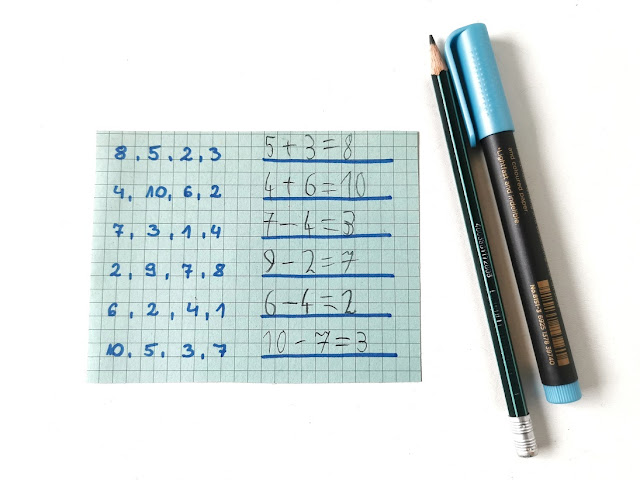 8, 5, 2, 3 5 + 3 = 8
4, 10, 6, 2 4 + 6 = 10
7, 3, 1, 4 7 - 4 = 3
2, 9, 7, 8 9 - 2 = 7
6, 2, 4, 1 6 - 4 = 2
10, 5, 3, 7 10 - 7 = 3